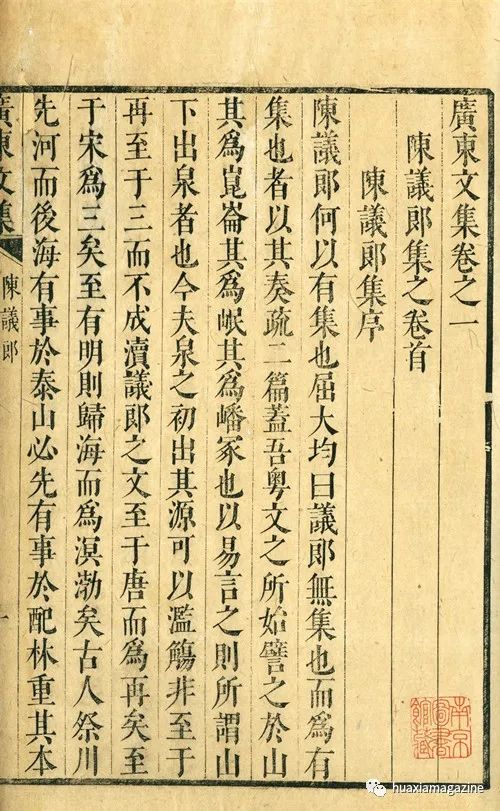 廣東文集卷之一
陳議郎集之卷首
陳議郎集序
陳議郎何以有集也屈大均曰議郎無集也而爲有
集也者以其奏疏二篇蓋吾粵文之所始譬之於山
其爲崑崙其爲岷其爲嶓冢也以易言之則所謂山
下出泉者也今夫泉之初出其源可以濫觴非至于
再至于三而不成瀆議郎之文至于唐而爲再矣至
于宋爲三矣至有明則歸海而爲溟渤矣古人祭川
先河而後海有事於泰山必先有事於配林重其本
廣東文集
陳議郎
一
南京圖書館藏
huaxiamagazine